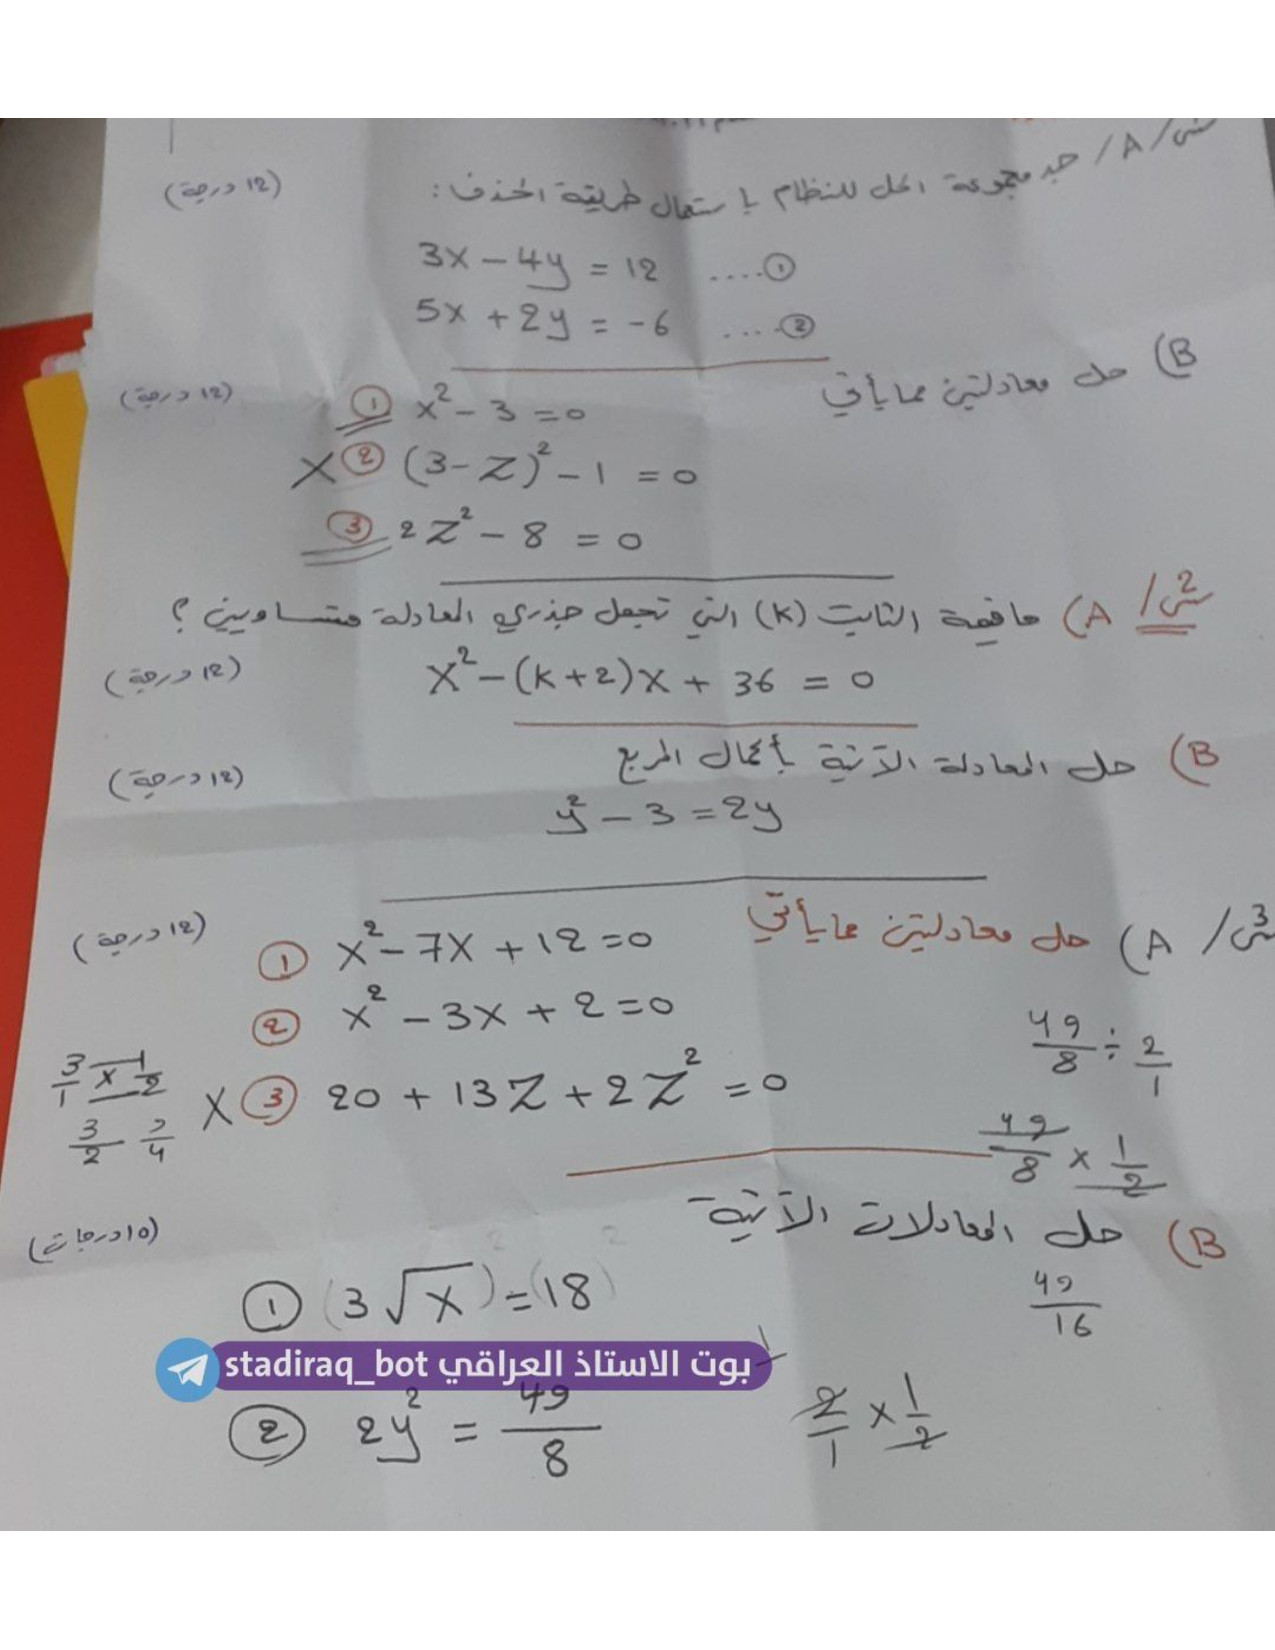 س/ A/ جد مجموعة الحل للنظام باستعمال طريقة الحذف : (12 درجة)
3x – 4y = 12 ....①
5x + 2y = -6 ....②
B) حل معادلتين مما يأتي (12 درجة)
① x² – 3 = 0
X ② (3 – Z)² – 1 = 0
③ 2Z² – 8 = 0
س2/ A) ما قيمة الثابت (K) التي تجعل جذري المعادلة متساويين ؟
x² – (K+2)x + 36 = 0 (12 درجة)
B) حل المعادلة الآتية بأكمال المربع (12 درجة)
y² – 3 = 2y
س3/ A) حل معادلتين مما يأتي (12 درجة)
① x² – 7x + 12 = 0
② x² – 3x + 2 = 0
X ③ 20 + 13Z + 2Z² = 0
3/1 x 1/2
49/8 ÷ 2/1
49/8 x 1/2
B) حل المعادلات الآتية (10 درجات)
49/16
① (3√x)² = (18)²
بوت الاستاذ العراقي stadiraq_bot
② 2y² = 49/8
2/1 x 1/2